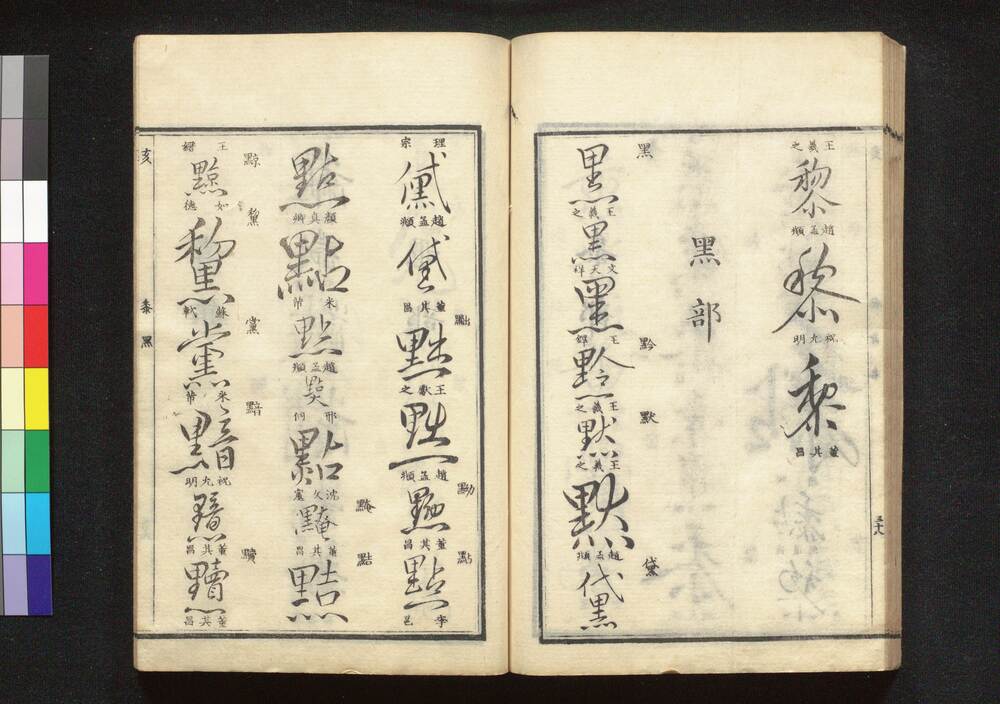 王羲之
黎
趙孟頫
黎
祝允明
黎
董其昌
黑部
五十八
黑
黑
王羲之
黑
文天祥
黑
王鐸
黔
黔
王羲之
默
默
王羲之
默
趙孟頫
黛
黛
理宗
黛
趙孟頫
黛
董其昌
黜
王獻之
趙孟頫
黝
黝
董其昌
點
點
李邕
點
顏真卿
點
米芾
點
趙孟頫
邢侗
點
沈久
黤
董其昌
黠
黠
王
黥
黥
如德
黧
黧
蘇軾
黨
黨
米芾
黯
黯
祝允明
黯
董其昌
黷
黷
董其昌
亥
黍黑